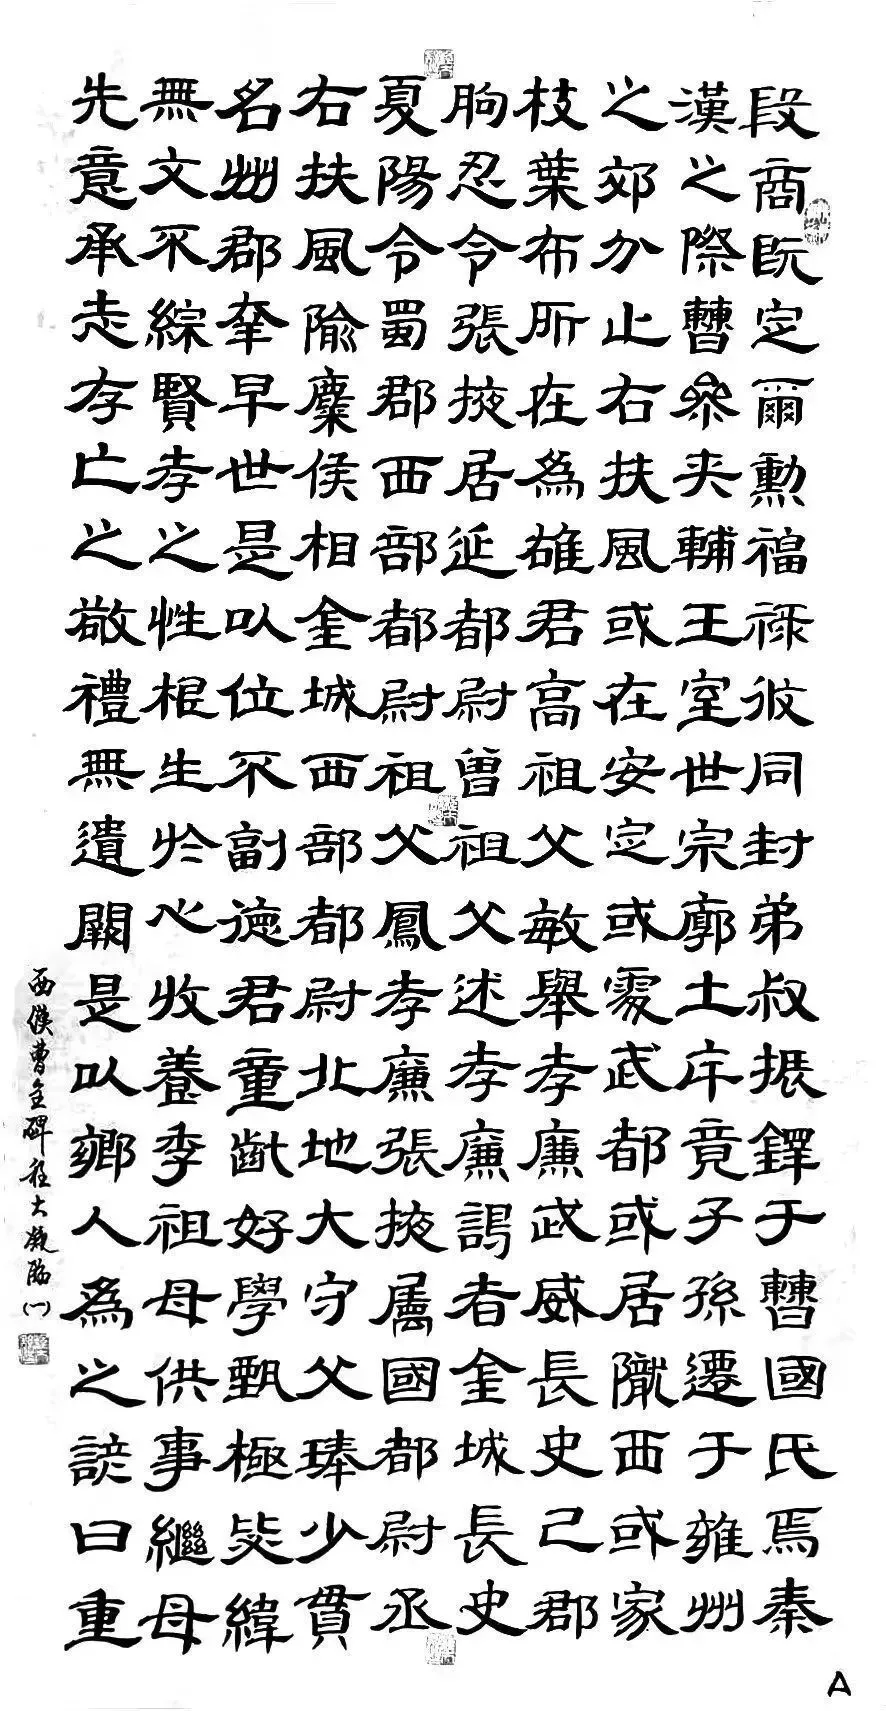 段商旣定爾勳福祿攸同封弟叔振鐸于曹國氏焉秦
漢之際曹參夾輔王室世宗廓土斥竟子孫遷于雍州
之郊分止右扶風或在安定或處武都或居隴西或家
枝葉布所在為雄君高祖父敏舉孝廉武威長史己郡
朐忍令張掖居延都尉曾祖父述孝廉謁者金城長史
夏陽令蜀郡西部都尉祖父鳳孝廉張掖屬國都尉丞
右扶風隃麋侯相金城西部都尉北地大守父琫少貫
名州郡不幸早世是以位不副德君童齔好學甄極毖緯
無文不綜賢孝之性根生於心收養季祖母供事繼母
先意承志存亡之敬禮無遺闕是以鄉人為之諺曰重
西漢曹全碑 程大凝臨
A